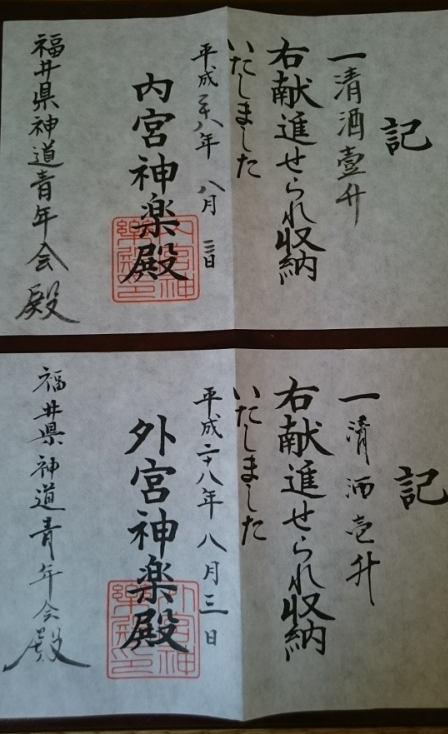 記
一清酒壹升
右献進せられ収納
いたしました
平成二十八年八月三日
内宮神楽殿
福井県神道青年会殿
記
一清酒壱升
右献進せられ収納
いたしました
平成二十八年八月三日
外宮神楽殿
福井県神道青年会殿